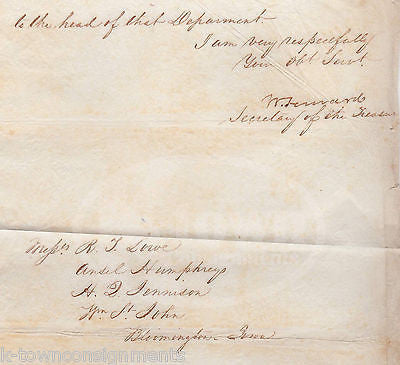 to the head of that Deparment
I am very respecfully
Your Obt Servt.
Secretary of the Treasu
Messrs R. J. Lowe
Ansel Humphreys
H. Q. Jennison
Wm St John
Bloomington Iowa
k-townconsignments